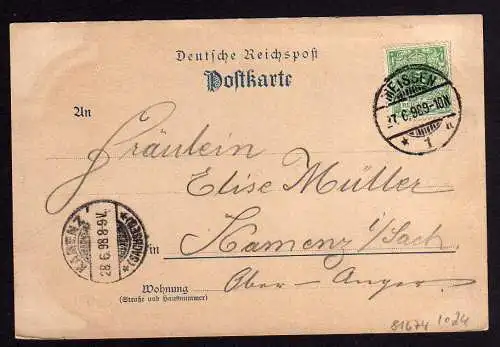 Deutsche Reichspost
Postkarte
MEISSEN
27.6.98 9-10N
* 1 n
An
Fräulein
Elise Müller
in Kamenz i/Sach
KAMENZ
28.6.98 8-9V.
*(SACHSEN)*
Ober-Anger.
Wohnung
(Straße und Hausnummer)
81674 1024